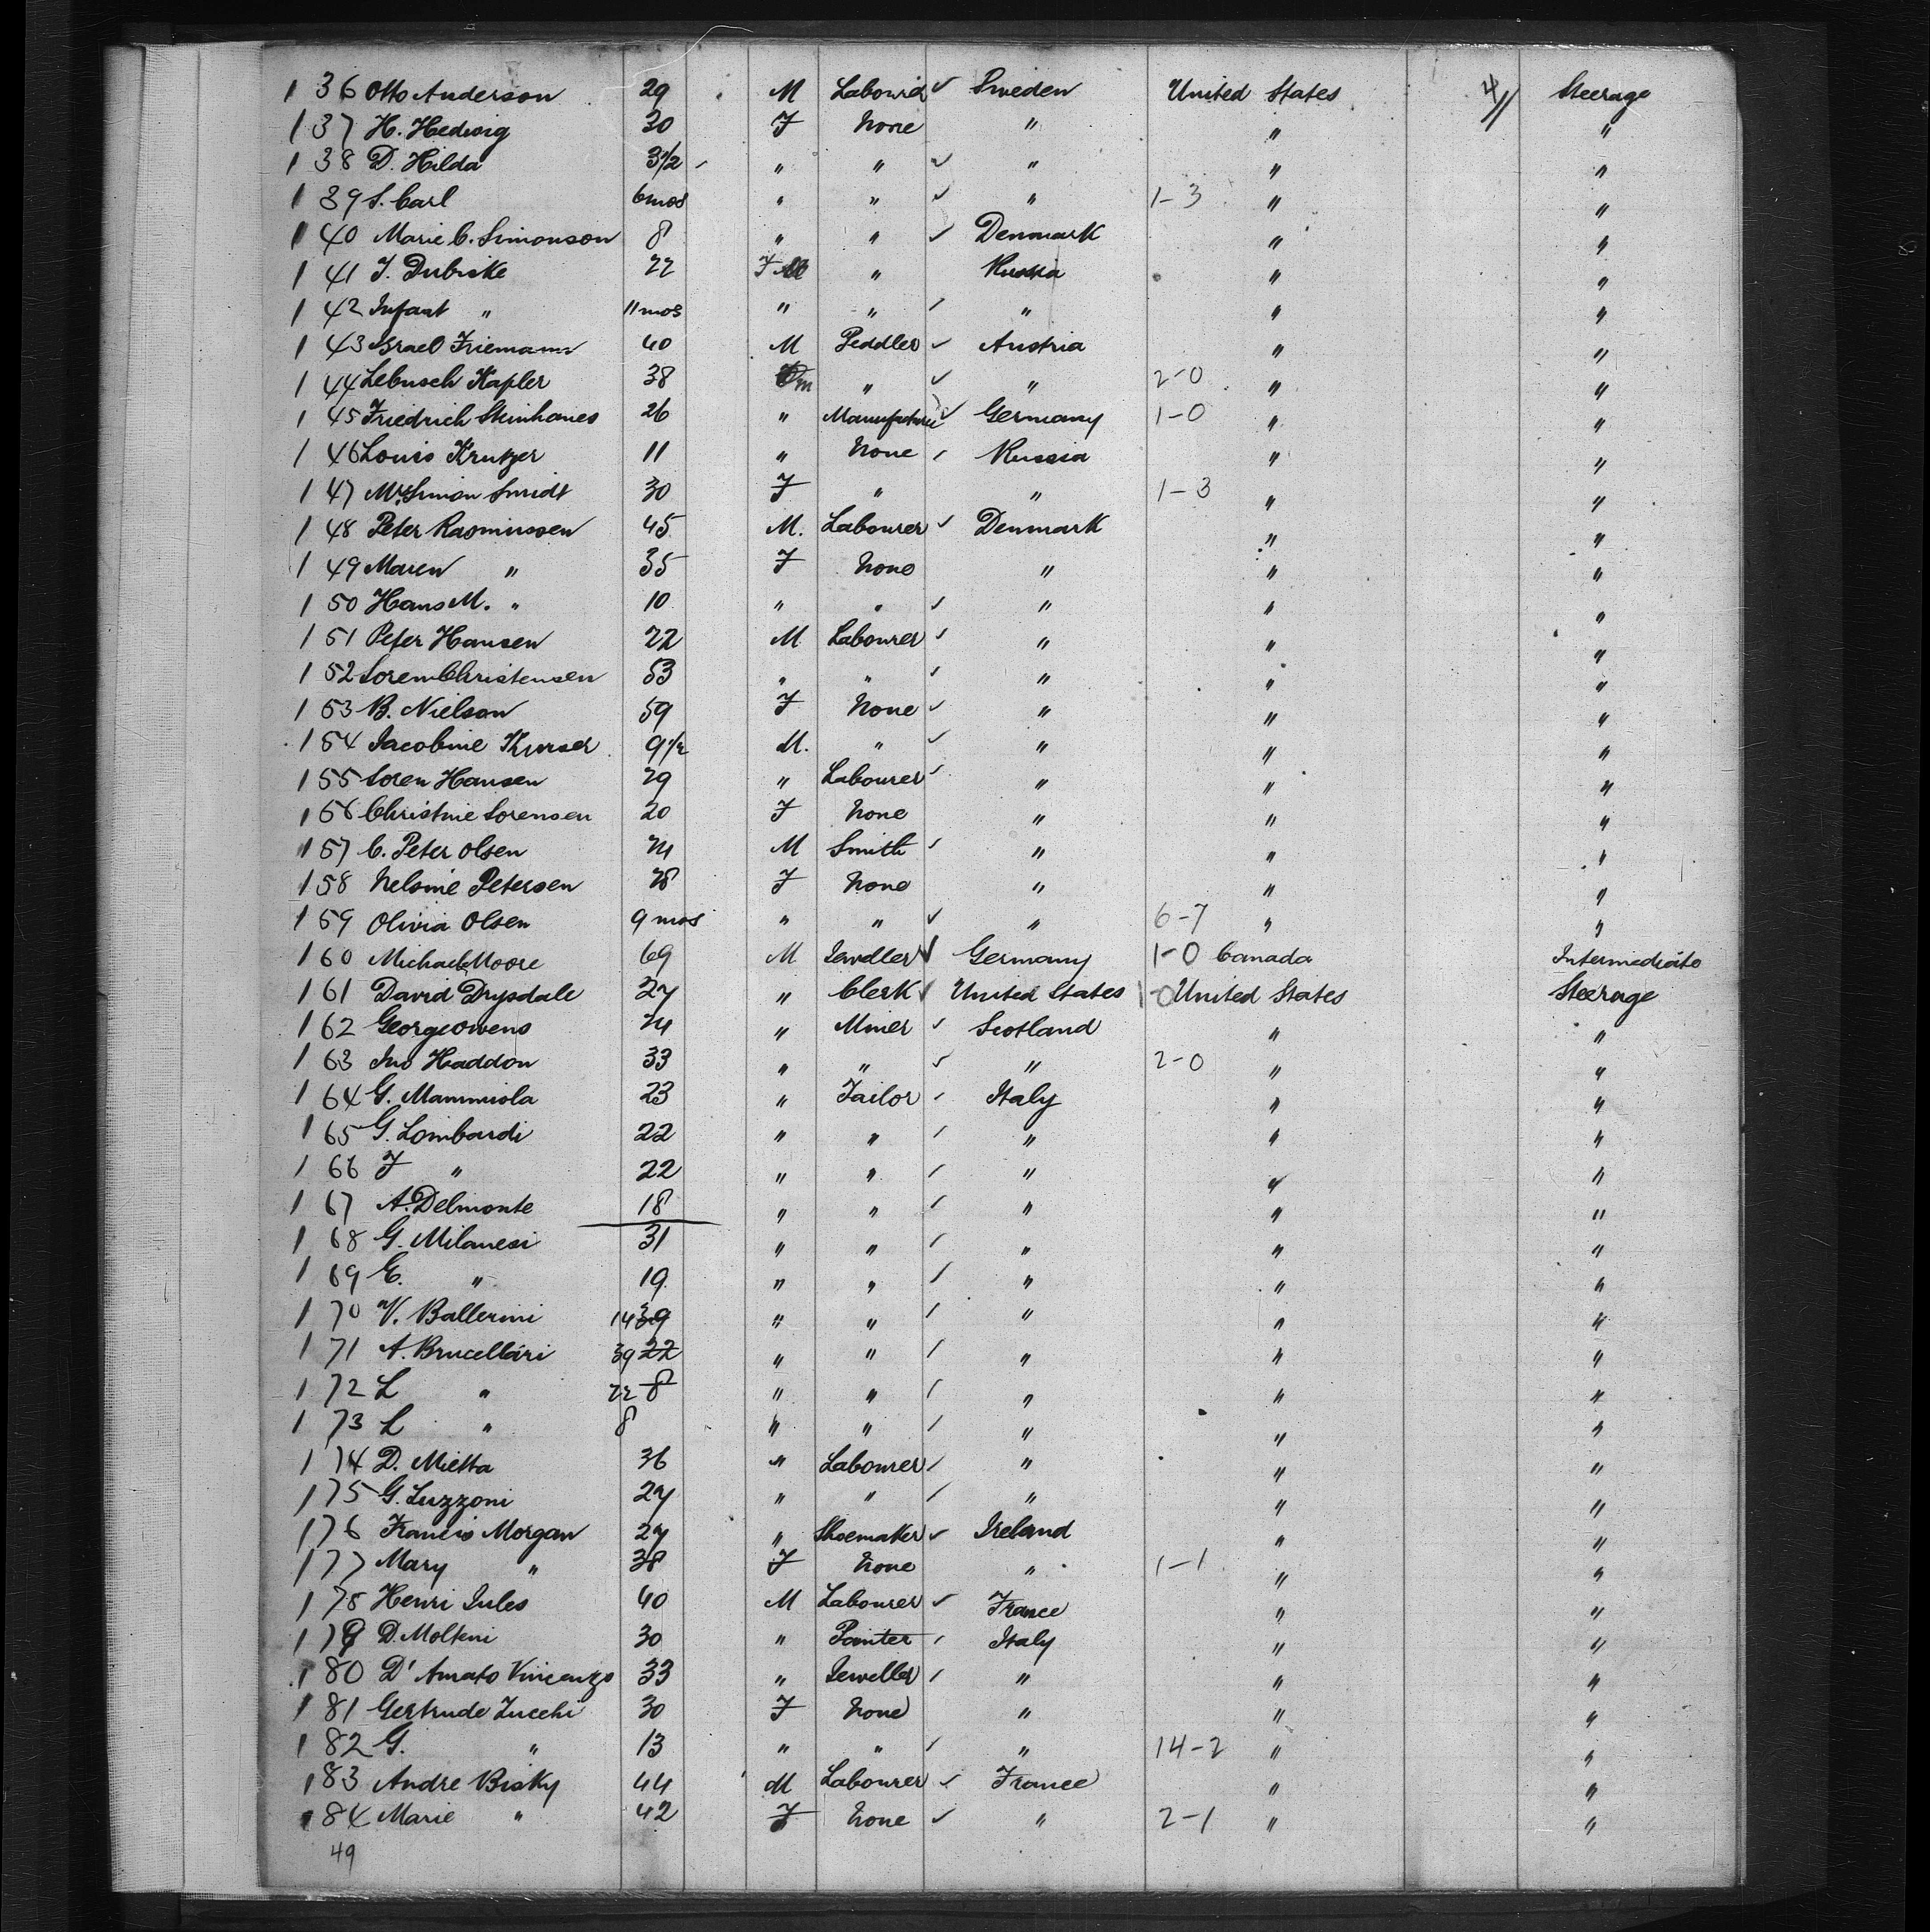 4//
1 36 Otto Anderson 29 M Labourer ✓ Sweden United States Steerage
1 37 H. Hedwig 30 F None " " "
1 38 D. Hilda 3 1/2 " " ✓ " " "
1 39 S. Carl 6 mos " " ✓ " 1-3 " "
1 40 Marie C. Simonson 8 " " ✓ Denmark " "
1 41 J. Dubiske 22 F " Russia " "
1 42 Infant " 11 mos " " ✓ " " "
1 43 Israel Friemann 40 M Peddler ✓ Austria " "
1 44 Lebusch Kapler 38 m " ✓ " 2-0 " "
1 45 Friedrich Steinhaues 26 " ✓ Germany 1-0 " "
1 46 Louis Krutzer 11 " None ✓ Russia " "
1 47 Mrs Simon Smidt 30 F " " 1-3 " "
1 48 Peter Rasmussen 45 M. Labourer ✓ Denmark " "
1 49 Maren " 35 F None " " "
1 50 Hans M. " 10 " " ✓ " " "
1 51 Peter Hansen 22 M Labourer ✓ " " "
1 52 Soren Christensen 53 " " ✓ " " "
1 53 B. Nielson 59 F None ✓ " " "
1 54 Jacobine 9 1/2 M. " ✓ " " "
1 55 Soren Hansen 29 " Labourer ✓ " " "
1 56 Christine Sorensen 20 F None " " "
1 57 C. Peter Olsen 24 M Smith ✓ " " "
1 58 Nelsine Petersen 28 F None " " "
1 59 Olivia Olsen 9 mos " " ✓ " 6-7 " "
1 60 Michael Moore 69 M ✓ Germany 1-0 Canada Intermediate
1 61 David Drysdale 27 " Clerk ✓ United States 1-0 United States Steerage
1 62 George Owens 24 " Miner ✓ Scotland " "
1 63 Jno Haddon 33 " " ✓ " 2-0 " "
1 64 G. Mammiola 23 " Tailor ✓ Italy " "
1 65 G. Lombardi 22 " " ✓ " " "
1 66 F " 22 " " ✓ " " "
1 67 A. Delmonte 18 " " ✓ " " "
1 68 G. Milanesi 31 " " ✓ " " "
1 69 E. " 19 " " ✓ " " "
1 70 V. Ballerini 14 39 " " ✓ " " "
1 71 A. Brucellari 39 22 " " ✓ " " "
1 72 L " 22 8 " " ✓ " " "
1 73 L " 8 " " ✓ " " "
1 74 D. Mietta 36 " Labourer ✓ " " "
1 75 G. Luzzoni 27 " " ✓ " " "
1 76 Francis Morgan 27 " Shoemaker ✓ Ireland " "
1 77 Mary " 38 F None " 1-1 " "
1 78 Henri Jules 40 M Labourer ✓ France " "
1 79 D. Molteni 30 " Painter ✓ Italy " "
1 80 D'Amato Vincenzo 33 " Jeweller ✓ " " "
1 81 Gertrude Zucchi 30 F None " " "
1 82 G. " 13 " " ✓ " 14-2 " "
1 83 Andre Bisky 44 M Labourer ✓ France " "
1 84 Marie " 42 F None ✓ " 2-1 " "
49